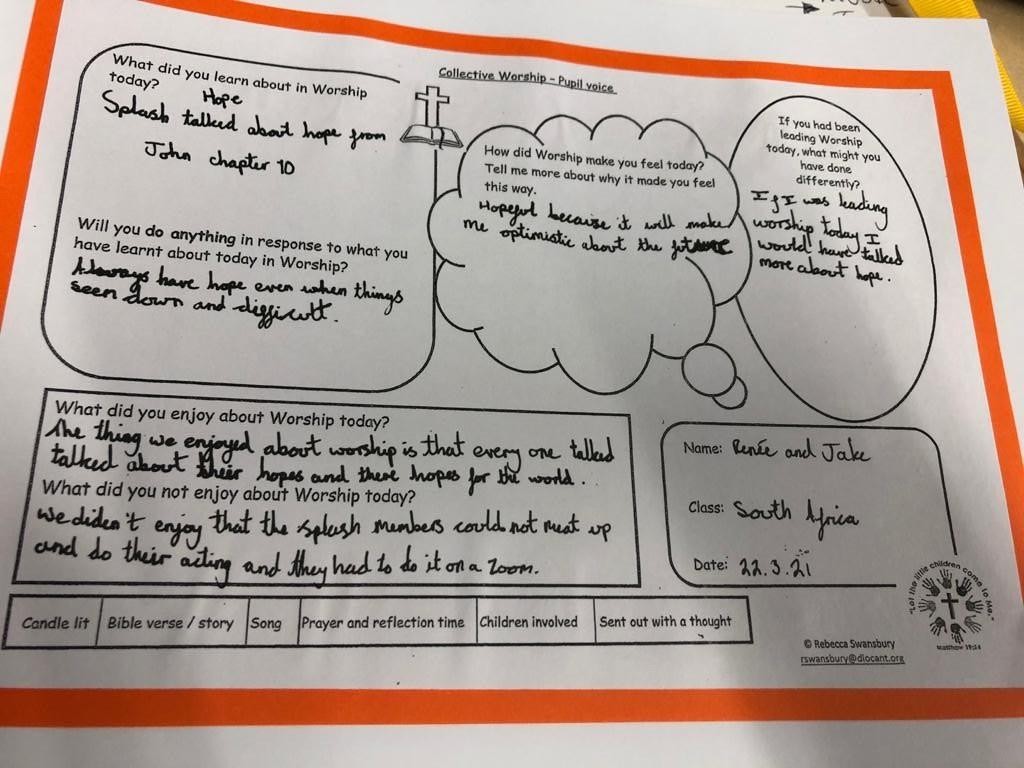 Collective Worship – Pupil voice
What did you learn about in Worship
today?
Hope
Splash talked about hope from
John chapter 10
Will you do anything in response to what you
have learnt about today in Worship?
Always have hope even when things
seen down and difficult.
How did Worship make you feel today?
Tell me more about why it made you feel
this way.
Hopeful because it will make
me optimistic about the future
If you had been
leading Worship
today, what might you
have done
differently?
If I was leading
worship today I
would have talked
more about hope.
What did you enjoy about Worship today?
The thing we enjoyed about worship is that every one talked
talked about their hopes and there hopes for the world.
What did you not enjoy about Worship today?
We diden't enjoy that the splash members could not meat up
and do their acting and they had to do it on a zoom.
Name: Renée and Jake
Class: South Africa
Date: 22.3.21
Candle lit
Bible verse / story
Song
Prayer and reflection time
Children involved
Sent out with a thought
"Let the little children come to Me."
Matthew 19:14
© Rebecca Swansbury
rswansbury@diocant.org